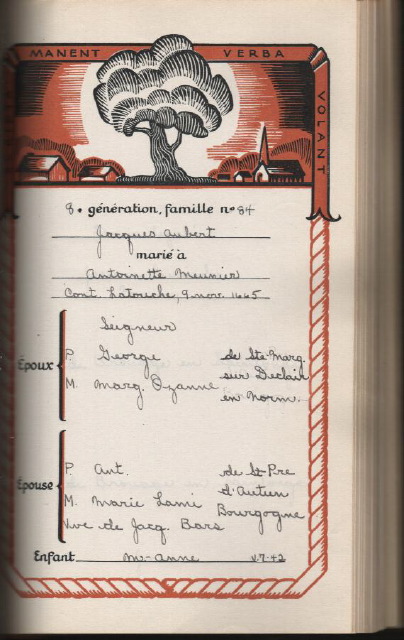 MANENT VERBA VOLANT
8e génération, famille no 84
Jacques Aubert
marié à
Antoinette Meunier
Cont. Latouche, 9 nov. 1665
Seigneur
Époux
P. George de Ste-Marg.
sur Declair
M. Marg. Ozanne en Norm.
Épouse
P. Ant. de St-Pre
d'Autun
M. Marie Lami Bourgogne
Vve de Jacq. Bars
Enfant M.-Anne v.7-42